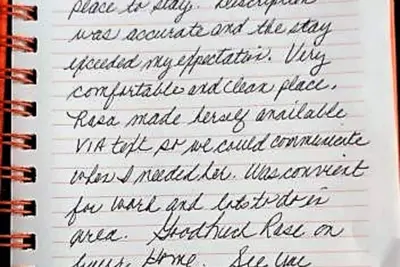 place to stay. Description
was accurate and the stay
exceeded my expectation. Very
comfortable and clean place.
Rosa made herself available
VIA text so we could communicate
when I needed her. Was convient
for work and lots to do in
area. Good luck Rose on
Home. See you